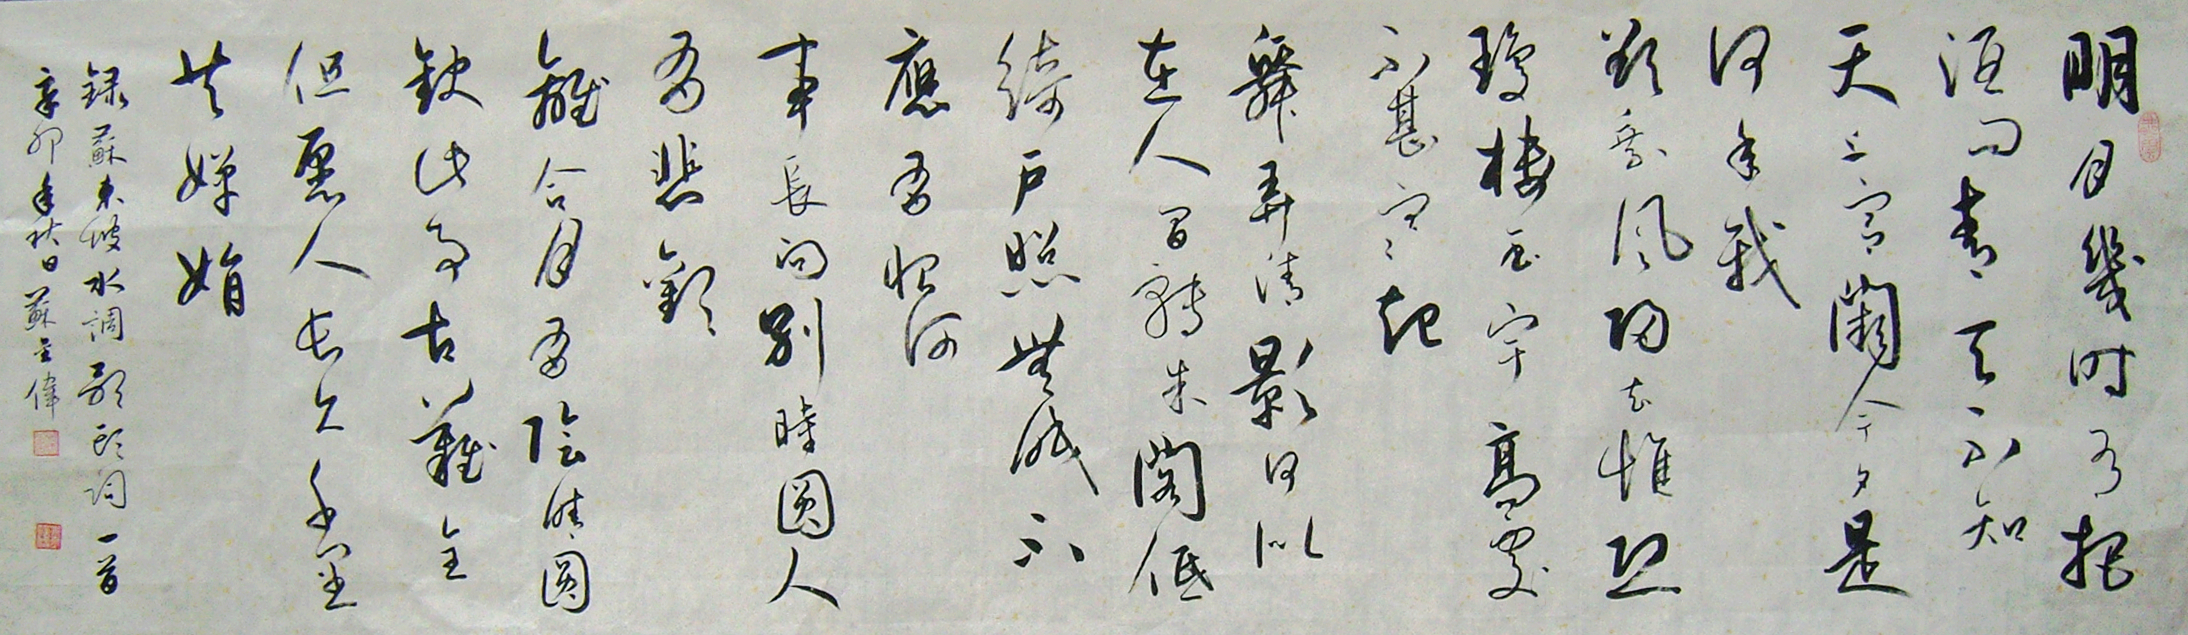 明月幾时有把
酒问青天不知
天上宫闕今夕是
何年我
欲乘风归去惟恐
瓊楼玉宇高處
不甚寒起
舞弄清影何似
在人间轉朱閣低
绮户照無眠不
應有恨何
事長向别時圓人
有悲歡
離合月有陰晴圓
缺此事古難全
但愿人长久千里
共嬋娟
録蘇東坡水調歌頭词一首
辛卯年秋日蘇偉